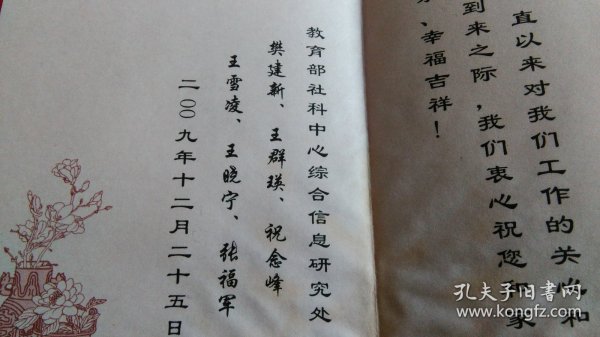 直以来对我们工作的关心和
到来之际，我们衷心祝您和家
、幸福吉祥！
教育部社科中心综合信息研究处
樊建新、王群瑛、祝念峰
王雪凌、王晓宁、张福军
二〇〇九年十二月二十五日
孔夫子旧书网
www.kongfz.com